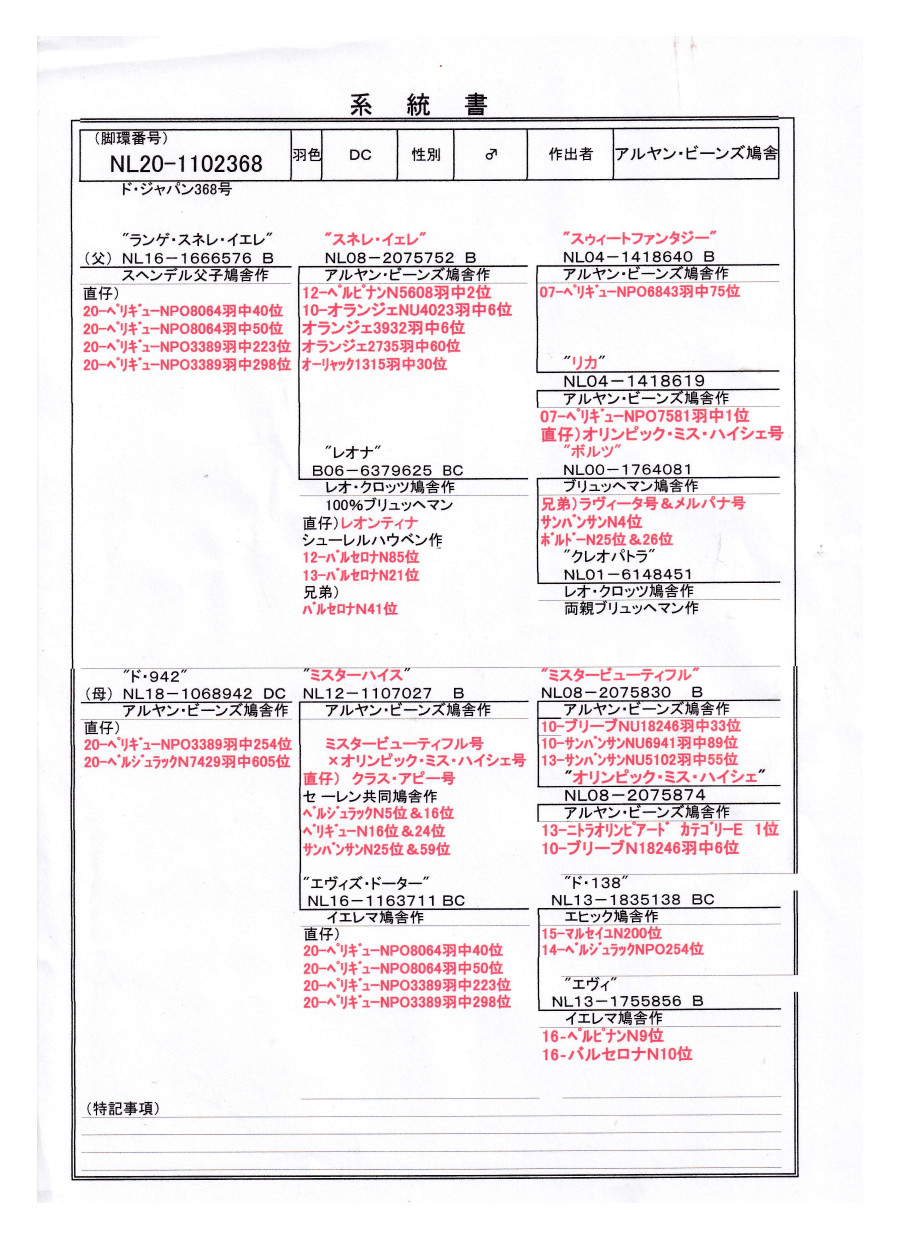 系 統 書
(脚環番号)
NL20-1102368
羽色
DC
性別
♂
作出者
アルヤン・ビーンズ鳩舎
ド・ジャパン368号
"ランゲ・スネレ・イエレ"
(父) NL16-1666576 B
スヘンデル父子鳩舎作
直仔)
20-ペリギューNPO8064羽中40位
20-ペリギューNPO8064羽中50位
20-ペリギューNPO3389羽中223位
20-ペリギューNPO3389羽中298位
"スネレ・イェレ"
NL08-2075752 B
アルヤン・ビーンズ鳩舎作
12-ペルピナンN5608羽中2位
10-オランジェNU4023羽中6位
オランジェ3932羽中6位
オランジェ2735羽中60位
オーリャック1315羽中30位
"レオナ"
B06-6379625 BC
レオ・クロッツ鳩舎作
100%ブリュッヘマン
直仔)レオンティナ
シューレルハウベン作
12-バルセロナN85位
13-バルセロナN21位
兄弟)
バルセロナN41位
"スウィートファンタジー"
NL04-1418640 B
アルヤン・ビーンズ鳩舎作
07-ペリギューNPO6843羽中75位
"リカ"
NL04-1418619
アルヤン・ビーンズ鳩舎作
07-ペリギューNPO7581羽中1位
直仔)オリンピック・ミス・ハイシェ号
"ボルツ"
NL00-1764081
ブリュッヘマン鳩舎作
兄弟)ラヴィータ号&メルパナ号
サンバンサンN4位
ボルドーN25位&26位
"クレオパトラ"
NL01-6148451
レオ・クロッツ鳩舎作
両親ブリュッヘマン作
"ド・942"
(母) NL18-1068942 DC
アルヤン・ビーンズ鳩舎作
直仔)
20-ペリギューNPO3389羽中254位
20-ベルジュラックN7429羽中605位
"ミスターハイス"
NL12-1107027 B
アルヤン・ビーンズ鳩舎作
ミスタービューティフル号
×オリンピック・ミス・ハイシェ号
直仔) クラス・アピー号
セーレン共同鳩舎作
ベルジュラックN5位&16位
ペリギューN16位&24位
サンバンサンN25位&59位
"エヴィズ・ドーター"
NL16-1163711 BC
イエレマ鳩舎作
直仔)
20-ペリギューNPO8064羽中40位
20-ペリギューNPO8064羽中50位
20-ペリギューNPO3389羽中223位
20-ペリギューNPO3389羽中298位
"ミスタービューティフル"
NL08-2075830 B
アルヤン・ビーンズ鳩舎作
10-ブリーブNU18246羽中33位
10-サンバンサンNU6941羽中89位
13-サンバンサンNU5102羽中55位
"オリンピック・ミス・ハイシェ"
NL08-2075874
アルヤン・ビーンズ鳩舎作
13-ニトラオリンピアード カテゴリーE 1位
10-ブリーブN18246羽中6位
"ド・138"
NL13-1835138 BC
エヒック鳩舎作
15-マルセイユN200位
14-ベルジュラックNPO254位
"エヴィ"
NL13-1755856 B
イエレマ鳩舎作
16-ペルピナンN9位
16-バルセロナN10位
(特記事項)